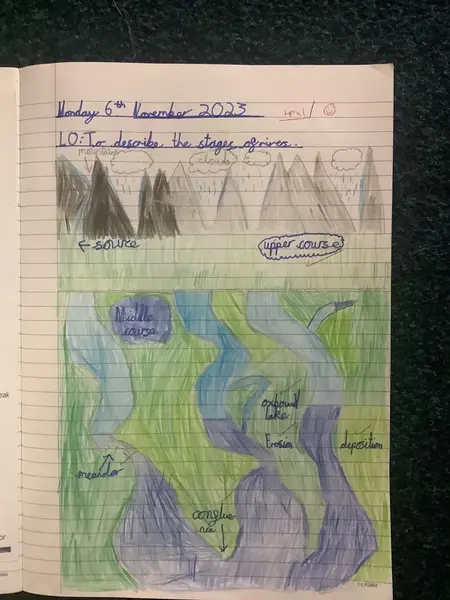 Monday 6th November 2023
1 px1 /
LO: To describe the stages of rivers.
mountains
clouds
← source
upper course
Middle course
oxbow lake
Erosion
deposition
meander
conglue nce
eak
or